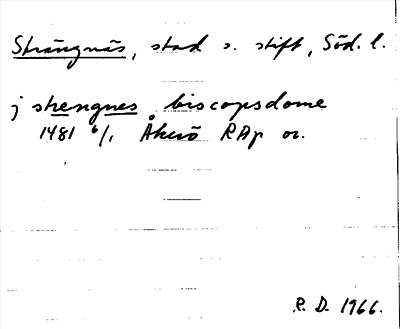 Strängnäs, stad o. stift, Söd. l.
j strengnes biscopsdome
1481 6/1 Åkerö RAp or.
R. D. 1966.